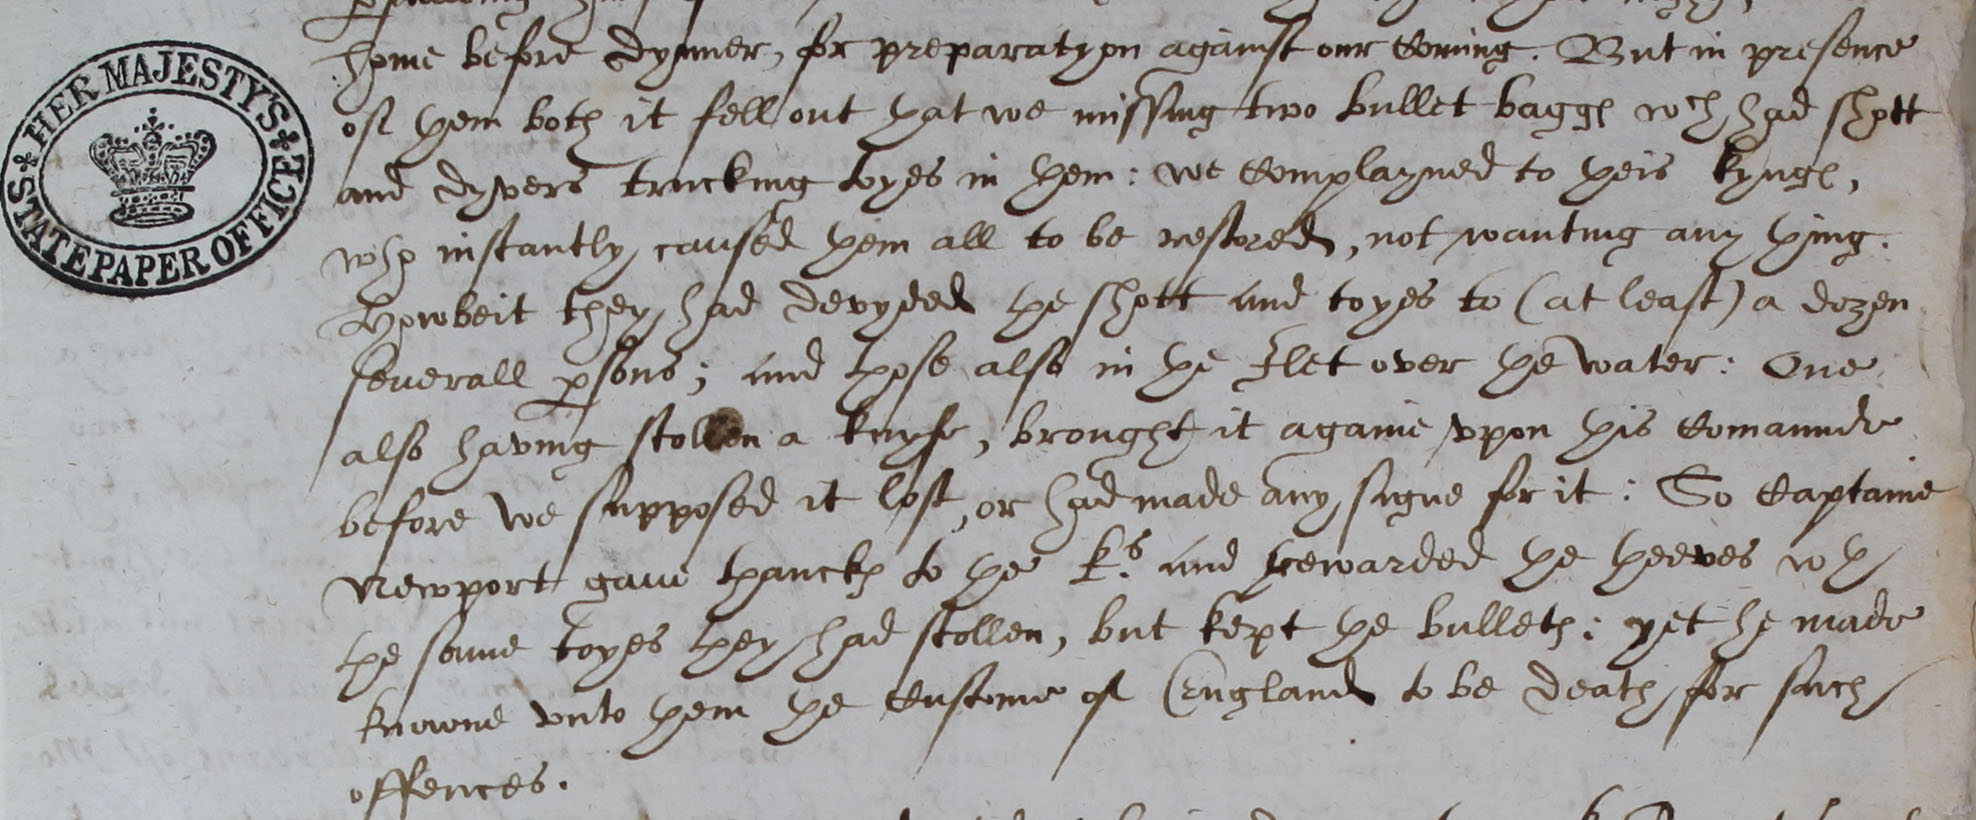 HER MAJESTY'S STATE PAPER OFFICE
home before dynner, for preparatyon against our Coming. But in presence
of þem both it fell out þat we missing two bullet baggs wch had shott
and dyvers trucking toyes in þem: we Complayned to þeis kyngs,
who instantly caused þem all to be restored, not wanting any þing.
Howbeit they had devyded þe shott and toyes to (at least) a dozen
severall psons; and þose also in þe Ilet over þe water: One
also having stollen a knyfe, brought it againe vpon þis Comaunde
before we supposed it lost, or had made any signe for it: So Captaine
Newport gaue thancks to þe ks. and rewarded þe þeeves wþ
þe same toyes þey had stollen, but kept þe bulletts: yet he made
knowne vnto þem þe Custome of England to be Death for such
offences.